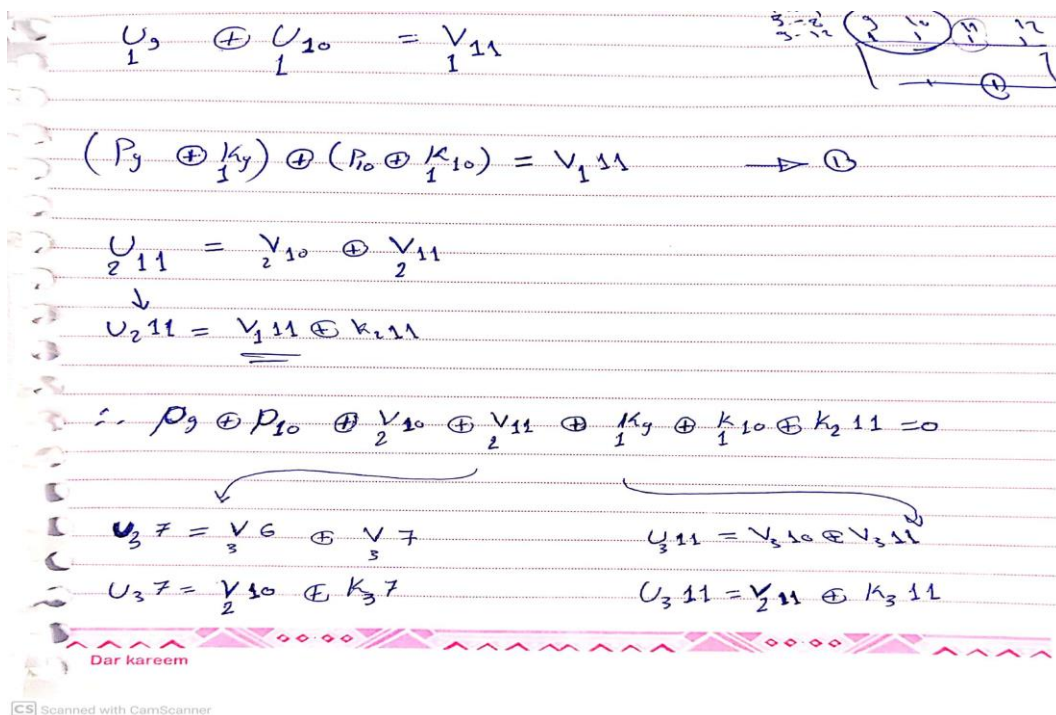 U₁9 ⊕ U₁10 = V₁11
(P9 ⊕ K₁9) ⊕ (P10 ⊕ K₁10) = V₁11 → ①
U₂11 = V₂10 ⊕ V₂11
↓
U₂11 = V₁11 ⊕ K₂11
∴ P9 ⊕ P10 ⊕ V₂10 ⊕ V₂11 ⊕ K₁9 ⊕ K₁10 ⊕ K₂11 = 0
U₃7 = V₃6 ⊕ V₃7
U₃11 = V₃10 ⊕ V₃11
U₃7 = V₂10 ⊕ K₃7
U₃11 = V₂11 ⊕ K₃11
Dar kareem
CS Scanned with CamScanner